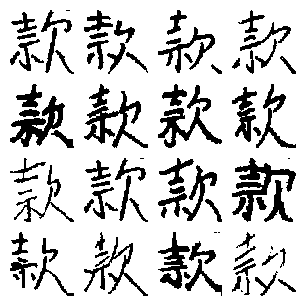 款款款款
款款款款
款款款款
款款款款